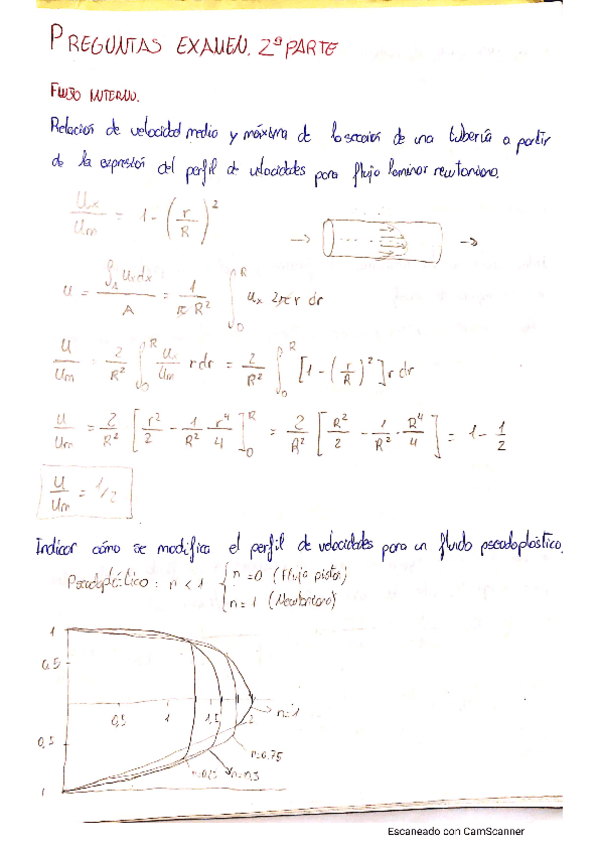 PREGUNTAS EXAMEN. 2ª PARTE
FLUJO INTERNO.
Relación de velocidad media y máxima de la sección de una tubería a partir
de la expresión del perfil de velocidades para flujo laminar newtoniano.
Ux/Um = 1 - (r/R)²
u = ∫A Ux dx / A = 1/(π R²) ∫₀ᴿ ux 2π r dr
u/Um = 2/R² ∫₀ᴿ Ux/Um r dr = 2/R² ∫₀ᴿ [1 - (r/R)²] r dr
u/Um = 2/R² [r²/2 - 1/R² r⁴/4]₀ᴿ = 2/R² [R²/2 - 1/R² · R⁴/4] = 1 - 1/2
u/Um = 1/2
Indicar cómo se modifica el perfil de velocidades para un fluido pseudoplástico.
Pseudoplástico: n < 1 { n = 0 (Flujo pistón)
n = 1 (Newtoniano)
1
0,5
0,5 1 1,5 2 n=1
0,5
n=0,75
n=0,5
1
Escaneado con CamScanner